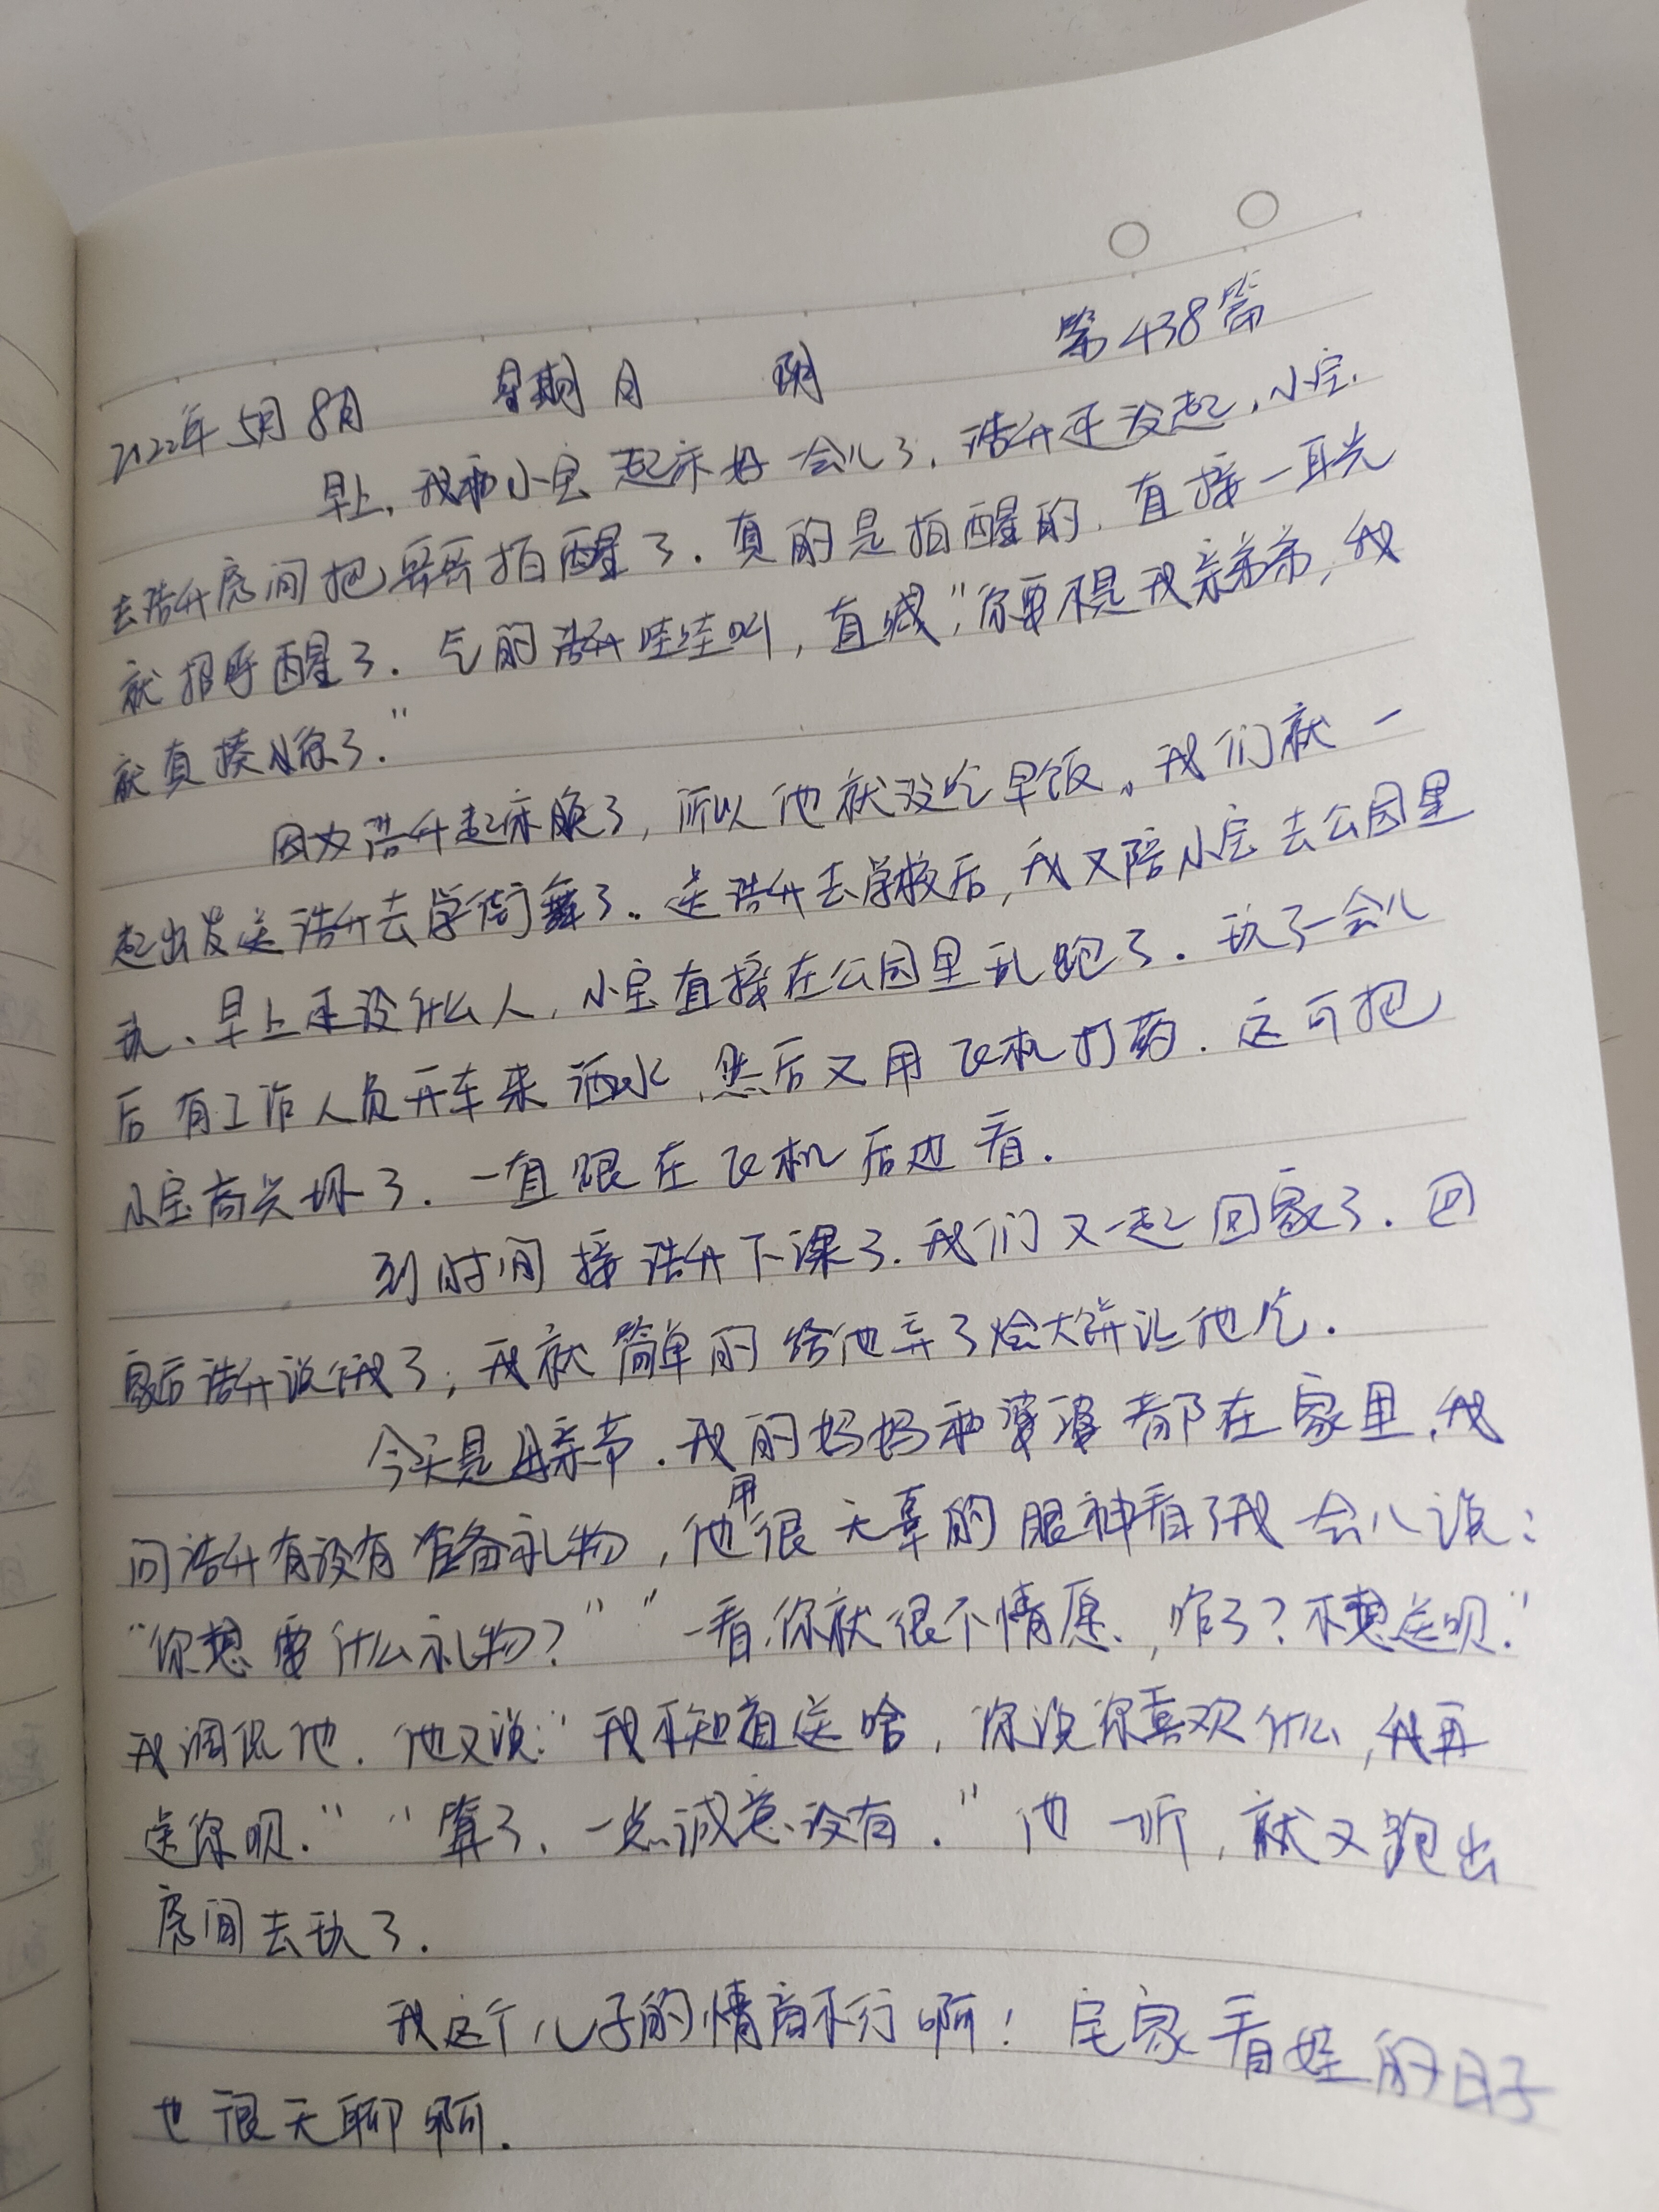 2022年5月8日 星期日 阴 第438篇
早上,我和小宝起床好一会儿了,浩升还没起,小宝
去浩升房间把哥哥拍醒了.真的是拍醒的,直接一耳光
就招呼醒了.气的浩升哇哇叫,直喊"你要不是我亲弟弟,我
就真揍你了."
因为浩升起床晚了,所以他就没吃早饭。我们就一
起出发送浩升去学街舞了。送浩升去学校后,我又陪小宝去公园里
玩、早上还没什么人,小宝直接在公园里乱跑了.玩了一会儿
后有工作人员开车来洒水,然后又用飞机打药.这可把
小宝高兴坏了.一直跟在飞机后边看.
到时间接浩升下课了.我们又一起回家了.回
家后浩升说饿了,我就简单的给他弄了烩大饼让他吃.
今天是母亲节.我的妈妈和婆婆都在家里,我
问浩升有没有准备礼物,他用很无辜的眼神看了我会儿说:
"你想要什么礼物?""一看你就很不情愿、,咋了?不想送呗."
我调侃他.他又说:"我不知道送啥,你说你喜欢什么,我再
送你呗.""算了、一点诚意没有."他一听,就又跑出
房间去玩了.
我这个儿子的情商不行啊!宅家看娃的日子
也很无聊啊.